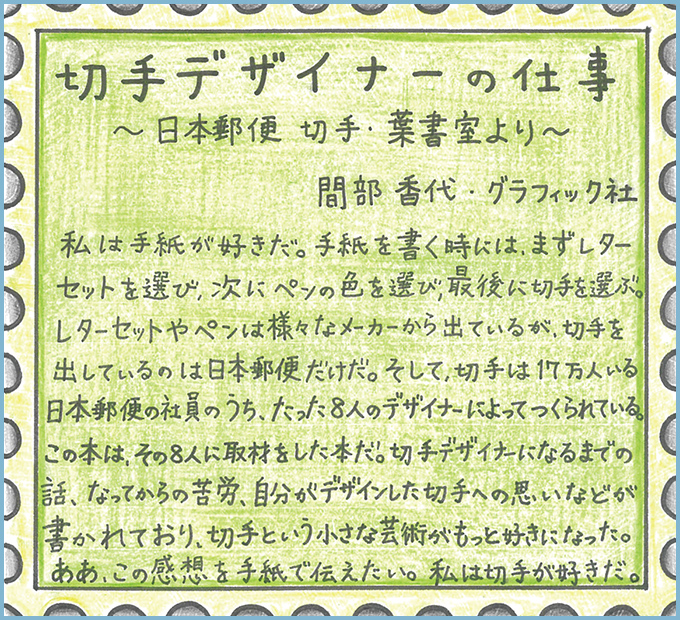 切手デザイナーの仕事
～日本郵便 切手・葉書室より～
間部 香代・グラフィック社
私は手紙が好きだ。手紙を書く時には、まずレター
セットを選び、次にペンの色を選び、最後に切手を選ぶ。
レターセットやペンは様々なメーカーから出ているが、切手を
出しているのは日本郵便だけだ。そして、切手は17万人いる
日本郵便の社員のうち、たった8人のデザイナーによってつくられている。
この本は、その8人に取材をした本だ。切手デザイナーになるまでの
話、なってからの苦労、自分がデザインした切手への思いなどが
書かれており、切手という小さな芸術がもっと好きになった。
ああ、この感想を手紙で伝えたい。私は切手が好きだ。